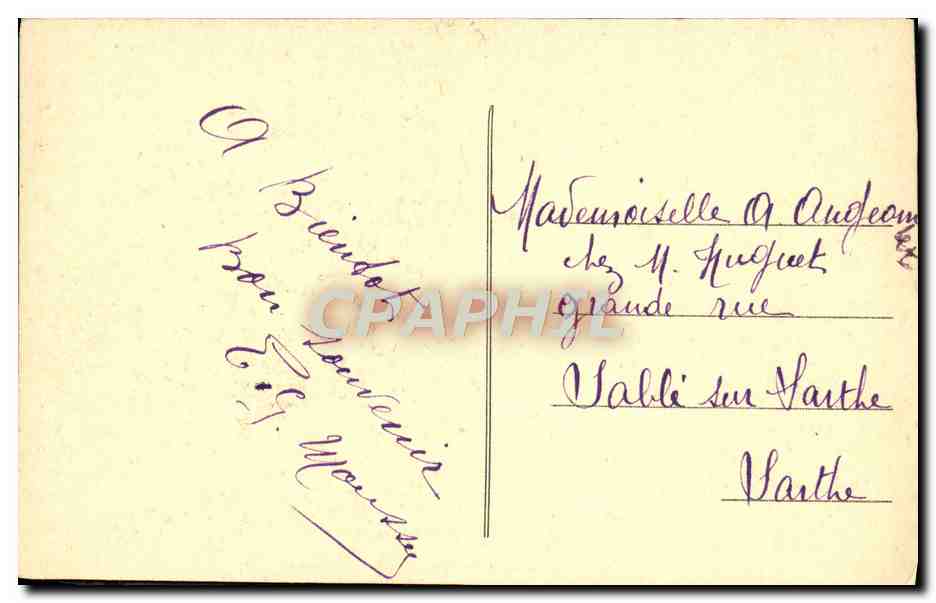 A Bientôt
Bon souvenir
E. G.
Mademoiselle A.
chez M. Huguet
grande rue
Sablé sur Sarthe
Sarthe
CPAPHIL